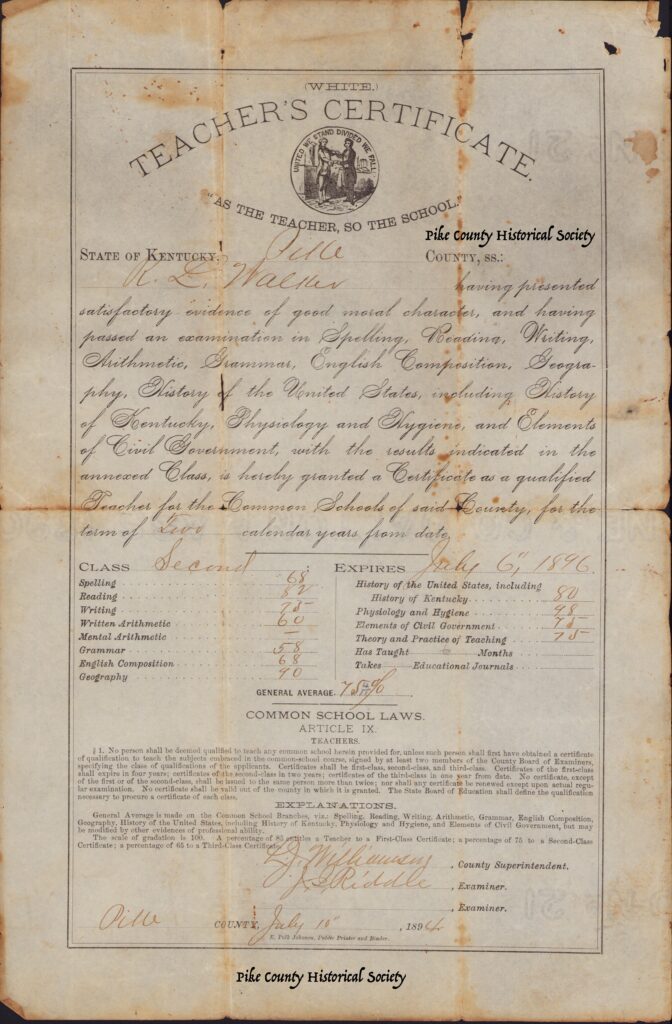 (WHITE.)
TEACHER'S CERTIFICATE.
UNITED WE STAND DIVIDED WE FALL
"AS THE TEACHER, SO THE SCHOOL."
Pike County Historical Society
STATE OF KENTUCKY, Pike COUNTY, SS.:
R. L. Walker having presented
satisfactory evidence of good moral character, and having
passed an examination in Spelling, Reading, Writing,
Arithmetic, Grammar, English Composition, Geogra-
phy, History of the United States, including History
of Kentucky, Physiology and Hygiene, and Elements
of Civil Government, with the results indicated in the
annexed Class, is hereby granted a Certificate as a qualified
Teacher for the Common Schools of said County, for the
term of Two calendar years from date.
CLASS Second : EXPIRES July 6", 1896.
Spelling 68
Reading 82
Writing 75
Written Arithmetic 60
Mental Arithmetic –
Grammar 58
English Composition 68
Geography 90
History of the United States, including
History of Kentucky 80
Physiology and Hygiene 98
Elements of Civil Government 75
Theory and Practice of Teaching 75
Has Taught Months
Takes Educational Journals
GENERAL AVERAGE. 75 %
COMMON SCHOOL LAWS.
ARTICLE IX.
TEACHERS.
§ 1. No person shall be deemed qualified to teach any common school herein provided for, unless such person shall first have obtained a certificate
of qualification to teach the subjects embraced in the common-school course, signed by at least two members of the County Board of Examiners,
specifying the class of qualifications of the applicants. Certificates shall be first-class, second-class, and third-class. Certificates of the first-class
shall expire in four years; certificates of the second-class in two years; certificates of the third-class in one year from date. No certificate, except
of the first or of the second-class, shall be issued to the same person more than twice; nor shall any certificate be renewed except upon actual regu-
lar examination. No certificate shall be valid out of the county in which it is granted. The State Board of Education shall define the qualification
necessary to procure a certificate of each class.
EXPLANATIONS.
General Average is made on the Common School Branches, viz.: Spelling, Reading, Writing, Arithmetic, Grammar, English Composition,
Geography, History of the United States, including History of Kentucky, Physiology and Hygiene, and Elements of Civil Government, but may
be modified by other evidences of professional ability.
The scale of gradation is 100. A percentage of 85 entitles a Teacher to a First-Class Certificate; a percentage of 75 to a Second-Class
Certificate; a percentage of 65 to a Third-Class Certificate.
Williamson, County Superintendent.
Riddle, Examiner.
, Examiner.
Pike COUNTY, July 10", 1894
E. Polk Johnson, Public Printer and Binder.
Pike County Historical Society